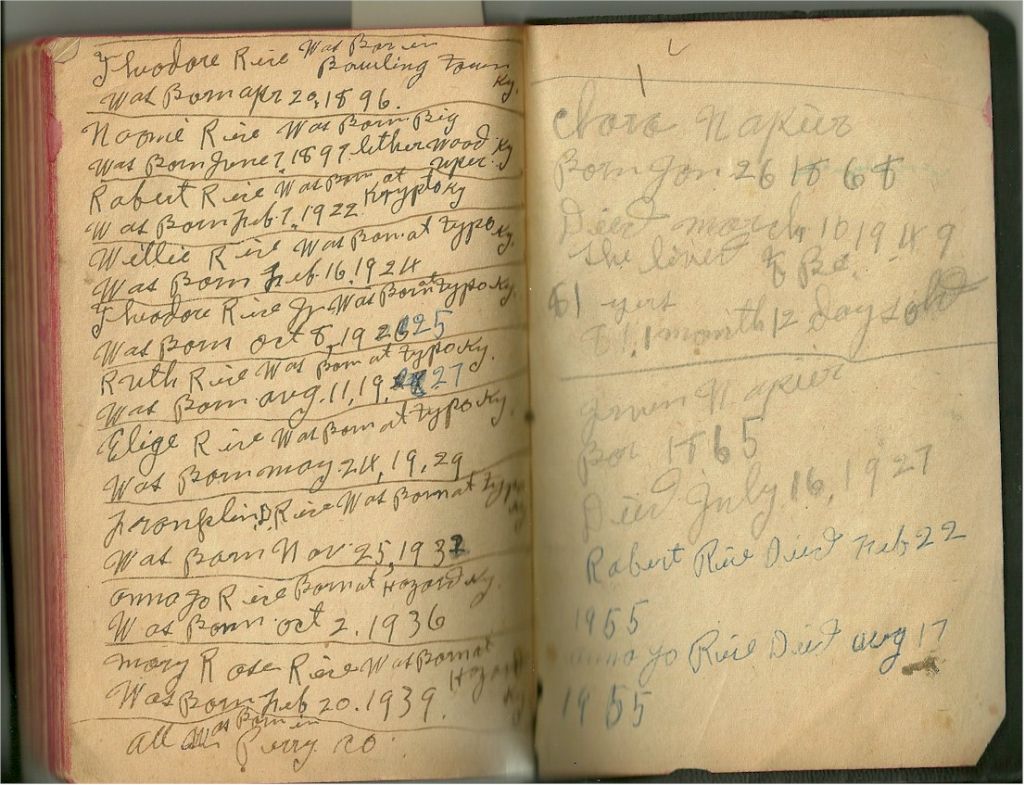 Theodore Rice Was Bor in
Bowling Town Ky,
Was Born apr 20, 1896.
Naomi Rice Was Born Big
Was Born June 7 1897 letherwood Ky
Robert Rice Was Born at Krypto Ky
Was Born Feb 7, 1922
Willie Rice Was Born at typo Ky.
Was Born Feb. 16, 1924
Theodore Rice Jr Was Born at typo Ky.
Was Born oct 8, 1925
Ruth Rice Was Born at typo Ky.
Was Born aug. 11, 19, 27
Elige Rice Was Born at typo Ky.
Was Born may. 24, 19, 29
Franplin D, Rice Was Born at typo
Was Born Nov. 25, 1932
anna Jo Rice Born at Hazard Ky.
Was Born oct 2. 1936
mary Rose Rice Was Born at
Was Born Feb 20. 1939. Hazard Ky
All Was Born in Perry co.
Clara Napier
Born Jan 26 1868
Died march 10 1949
She lived to Be.
81 yers
1 month 12 Days old
Napier
Bor 1865
Died July 16, 1927
Robert Rice Died Feb 22
1955
anna Jo Rice Died aug 17
1955